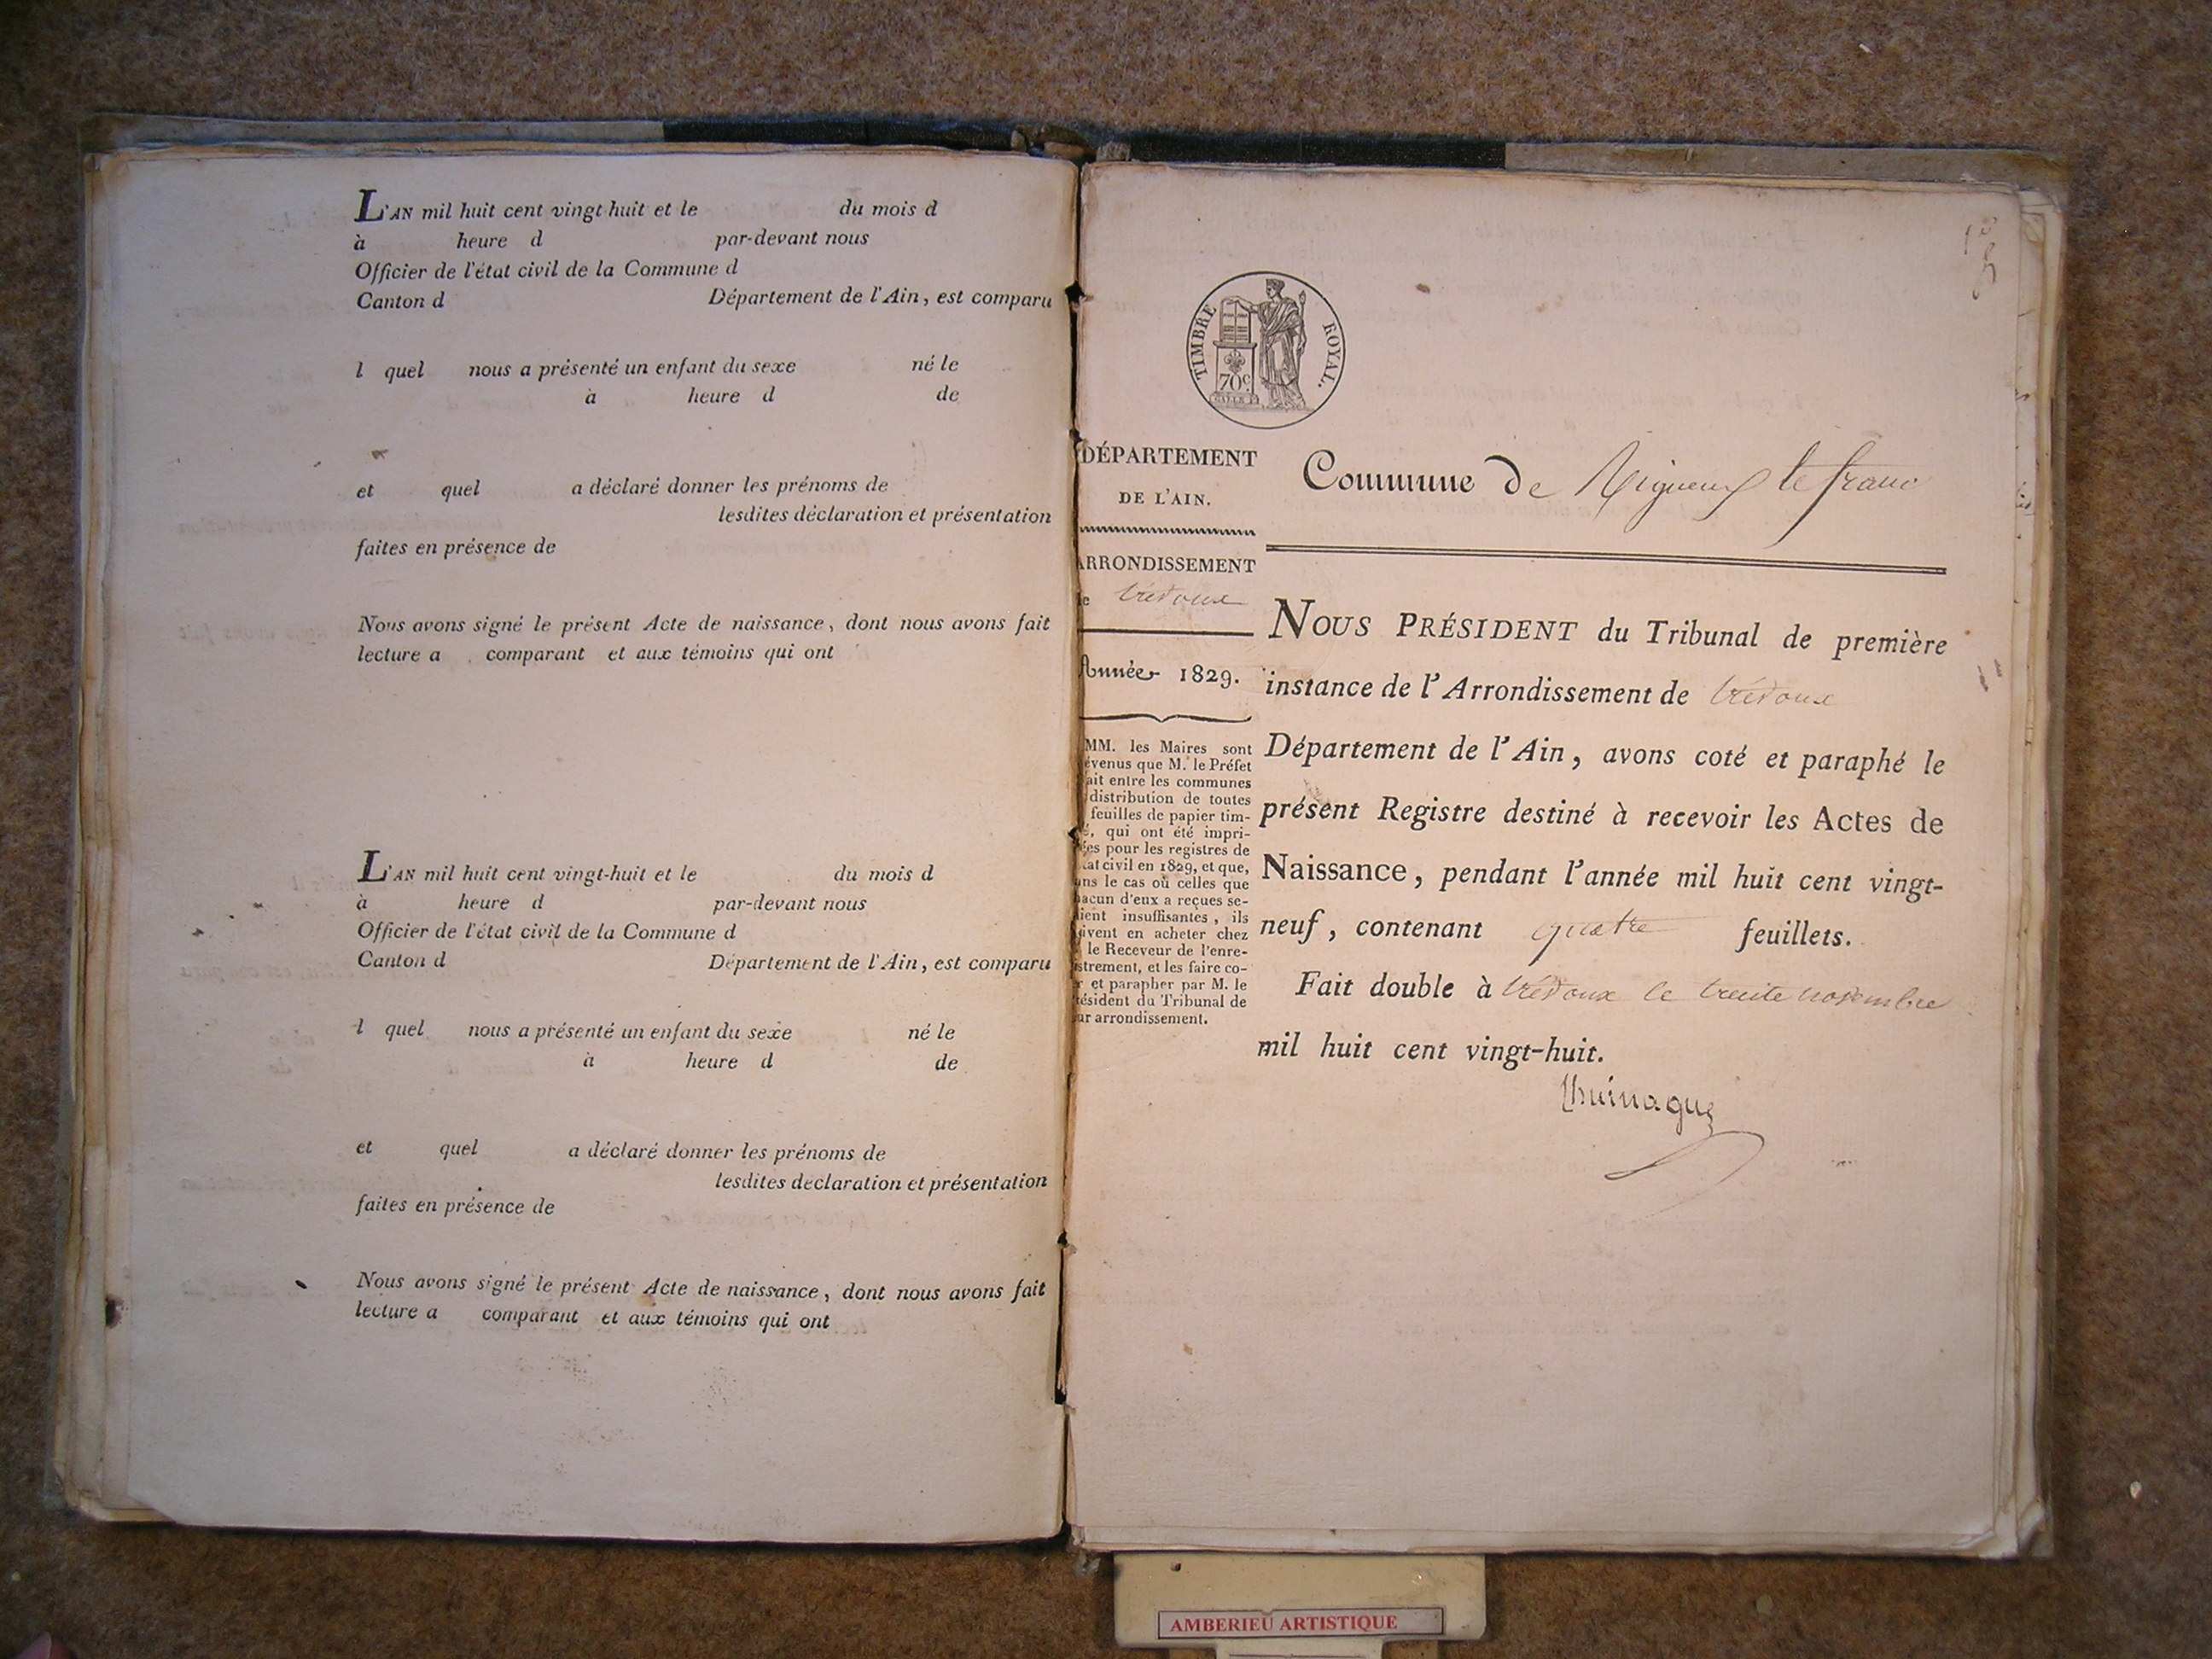 L'AN mil huit cent vingt-huit et le du mois d
à heure d par-devant nous
Officier de l'état civil de la Commune d
Canton d Département de l'Ain, est comparu
l quel nous a présenté un enfant du sexe né le
à heure d de
et quel a déclaré donner les prénoms de
lesdites déclaration et présentation
faites en présence de
Nous avons signé le présent Acte de naissance, dont nous avons fait
lecture a comparant et aux témoins qui ont
L'AN mil huit cent vingt-huit et le du mois d
à heure d par-devant nous
Officier de l'état civil de la Commune d
Canton d Département de l'Ain, est comparu
l quel nous a présenté un enfant du sexe né le
à heure d de
et quel a déclaré donner les prénoms de
lesdites declaration et présentation
faites en présence de
Nous avons signé le présent Acte de naissance, dont nous avons fait
lecture a comparant et aux témoins qui ont
TIMBRE ROYAL.
70c.
DÉPARTEMENT
DE L'AIN.
ARRONDISSEMENT
de trévoux
Année 1829.
MM. les Maires sont
évenus que M. le Préfet
ait entre les communes
distribution de toutes
feuilles de papier tim-
é, qui ont été impri-
ées pour les registres de
tat civil en 1829, et que,
ans le cas où celles que
hacun d'eux a reçues se-
ient insuffisantes, ils
ivent en acheter chez
le Receveur de l'enre-
istrement, et les faire co-
r et parapher par M. le
résident du Tribunal de
ur arrondissement.
Commune de Rigneux le franc
NOUS PRÉSIDENT du Tribunal de première
instance de l'Arrondissement de trévoux
Département de l'Ain, avons coté et paraphé le
présent Registre destiné à recevoir les Actes de
Naissance, pendant l'année mil huit cent vingt-
neuf, contenant quatre feuillets.
Fait double à trévoux le trente novembre
mil huit cent vingt-huit.
AMBERIEU ARTISTIQUE